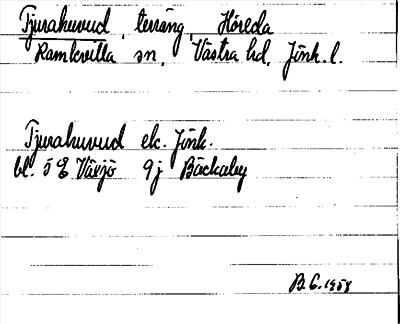 Tjurahuvud, terräng, Höreda
Ramkvilla sn, Västra hd, Jönk. l.
Tjurahuvud ek. Jönk.
bl. 5 E Växjö 9j Bäckaby
B.E. 1958